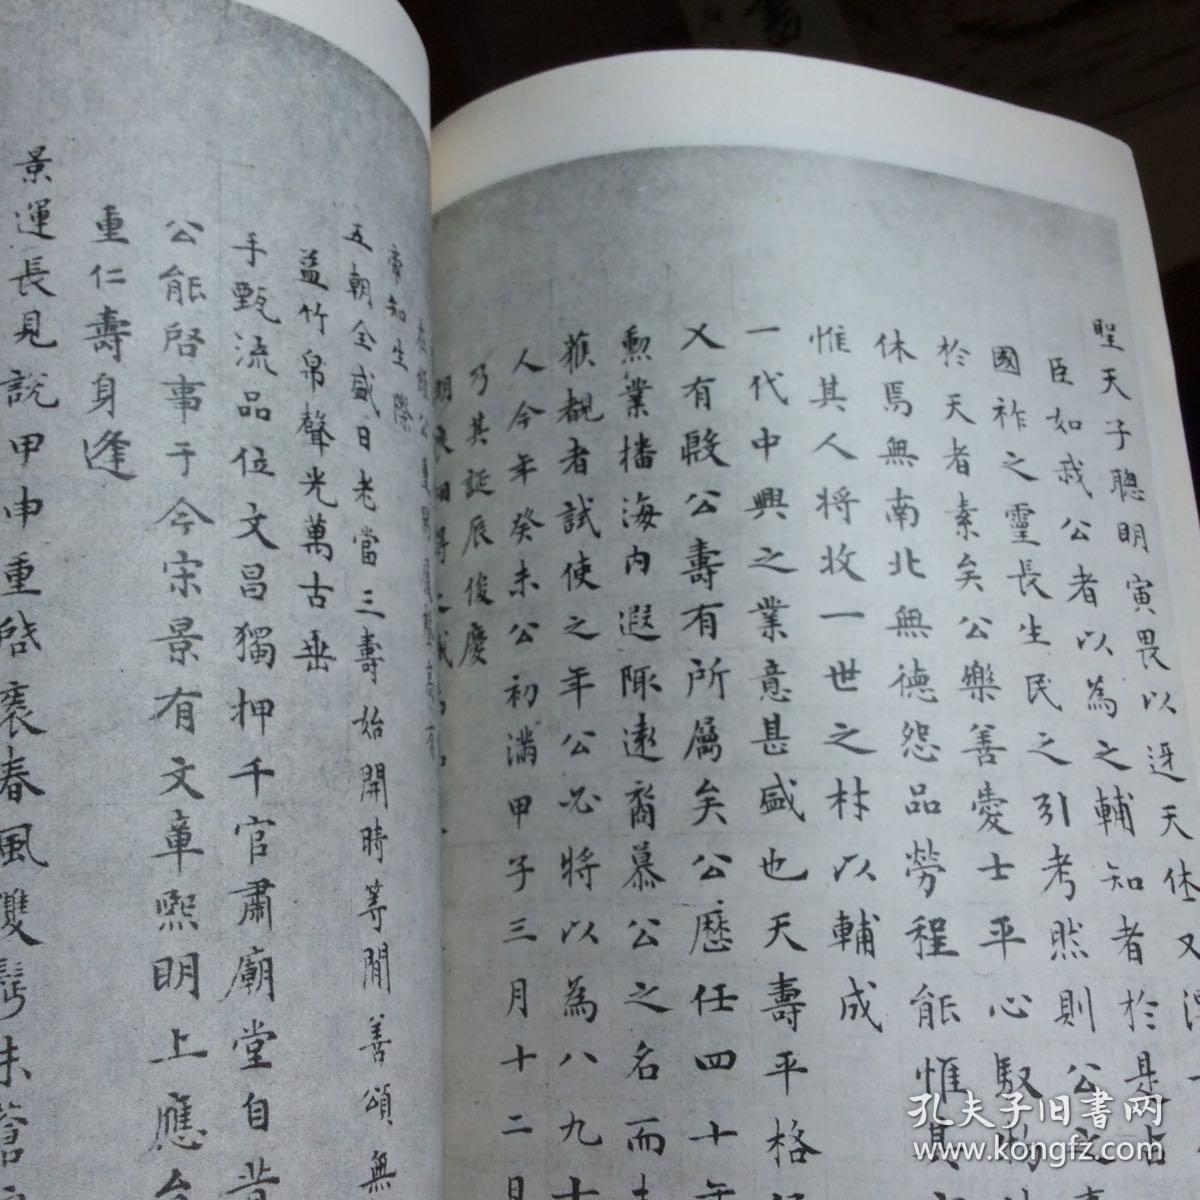 聖天子聰明寅畏以迓天休又
臣如我公者以為之輔知者於是
國祚之靈長生民之引考然則公之
於天者素矣公樂善愛士平心馭物
休焉無南北無德怨品勞程能惟其
惟其人将收一世之材以輔成
一代中興之業意甚盛也天壽平格
又有殿公壽有所屬矣公歷任四十年
勲業播海内遐陬遠裔慕公之名而
獲覩者試使之年公必将以為八九十
人今年癸未公初滿甲子三月十二月
乃其誕辰俊慶
帝知生際
五朝全盛日老當三壽始開時等閒善頌無
益竹帛聲光萬古垂
手甄流品位文昌獨押千官肅廟堂自昔
公能啓事于今宋景有文章熙明上應
重仁壽身逢
景運長見說甲申重啓袠春風雙鬢未蒼
孔夫子旧書网
www.kongfz.com